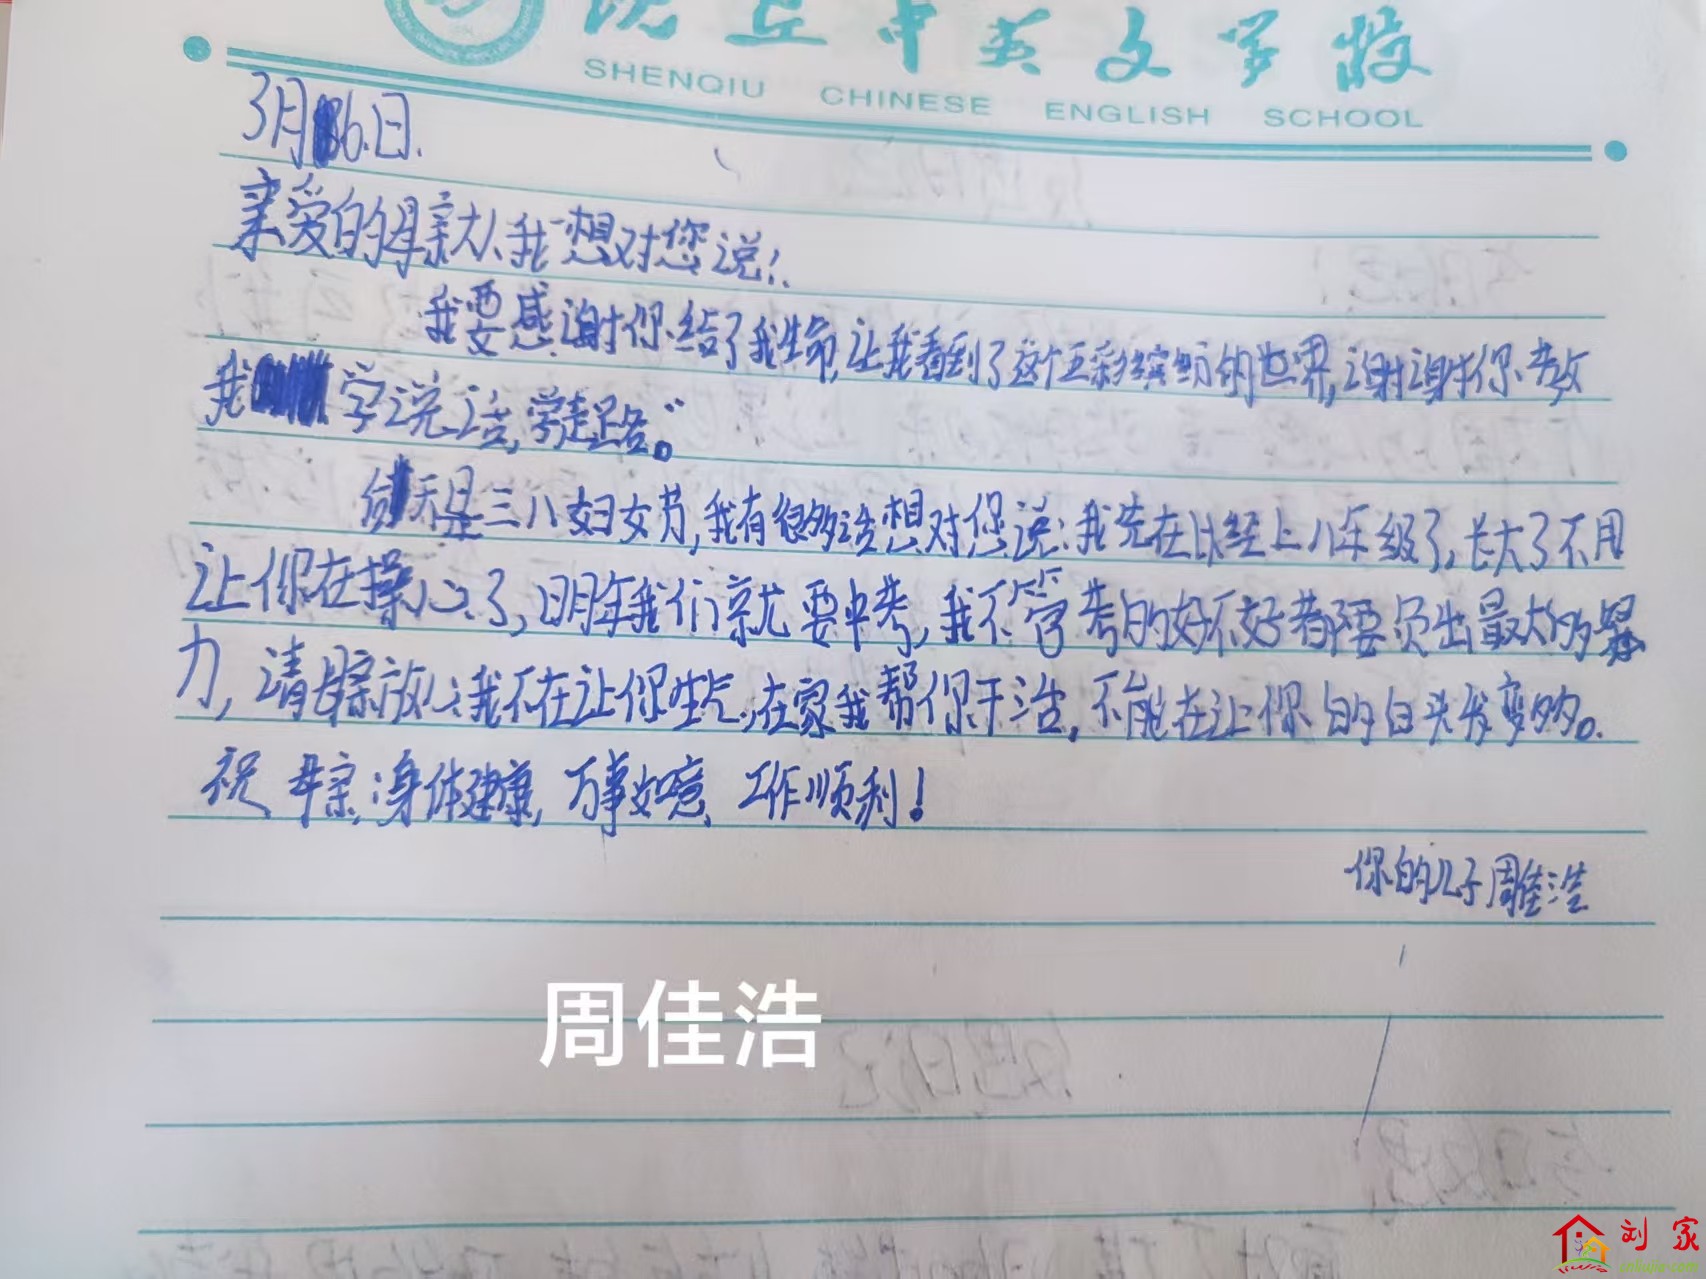 沈丘中英文学校
SHENQIU CHINESE ENGLISH SCHOOL
3月6.日.
亲爱的母亲大人我想对您说:
我要感谢你给了我生命,让我看到了这个五彩缤纷的世界,谢谢你教
我学说话,学走路。
天是三八妇女节,我有很多话想对您说:我先在以经上八年级了,长大了不用
让你在操心了,明年我们就要中考,我不管考的好不好都要负出最大的努
力,请母亲放心我不在让你生气,在家我帮你干活,不能在让你的白头发变多。
祝母亲:身体建康,万事如意、工作顺利!
你的儿子周佳浩
周佳浩
刘家